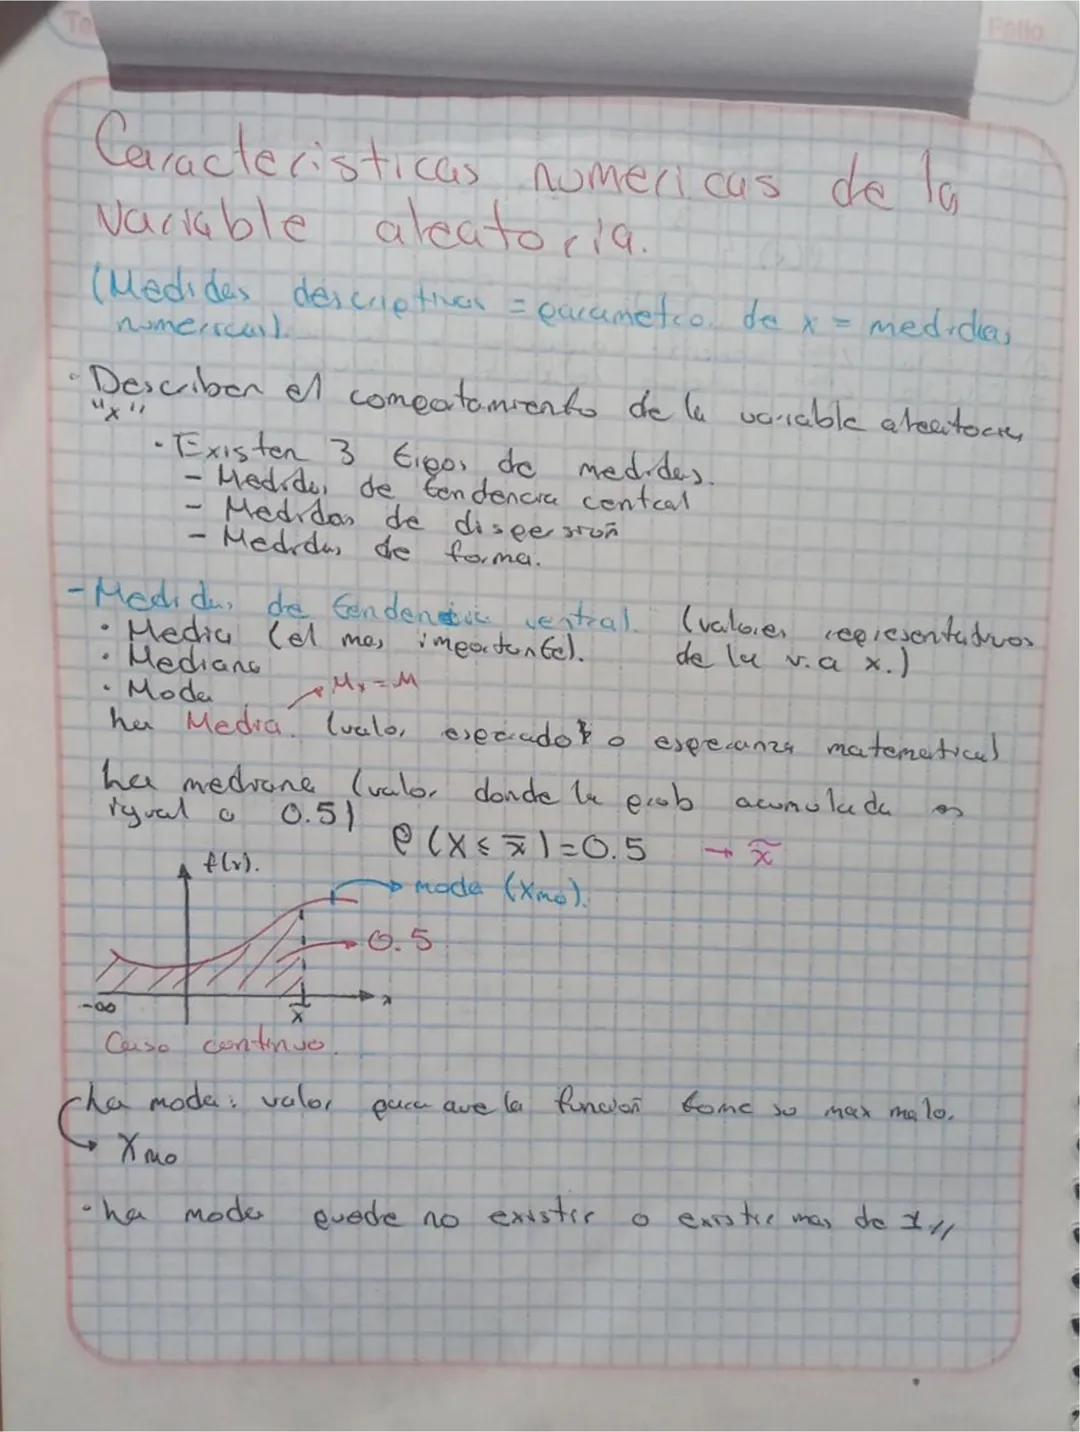 Folio
Caracteristicas numericas de la
variable aleatoria.
(Medidas descriptivas = parametro. de x = medidas
numericas).
· Describen el comportamiento de la variable aleatoria
"x"
· Existen 3 tipos de medidas.
- Medidas de tendencia central
- Medidas de dispersión
- Medidas de forma.
- Medidas de tendencia central. (valores representativos
· Media (el mas importante). de la v.a x.)
· Mediana
· Moda
Mx = M
La Media. (valor esperado o esperanza matematica)
La mediana (valor donde la prob acumulada es
igual a 0.5)
P(X ≤ x̄) = 0.5 → x̃
f(x).
→ moda (Xmo).
→ 0.5
-∞ x̄ x
Caso continuo.
La moda: valor para que la función tome su max malo.
→ Xmo
· La moda puede no existir o existir mas de 1//